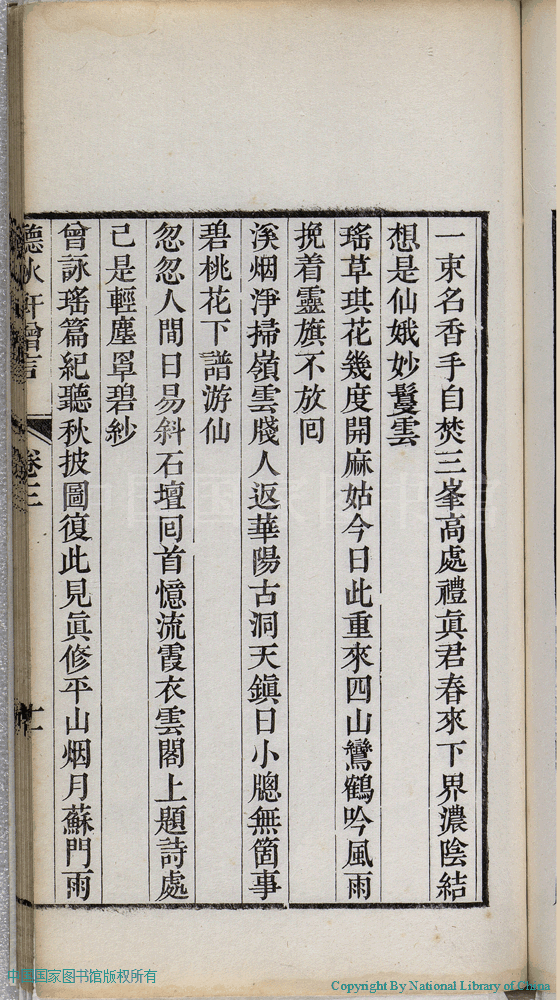 一束名香手自焚三峯高處禮眞君春來下界濃陰結
想是仙娥妙鬘雲
瑶草琪花幾度開麻姑今日此重來四山鸞鶴吟風雨
挽着靈旗不放囘
溪烟淨掃嶺雲殘人返華陽古洞天鎮日小牕無箇事
碧桃花下譜游仙
忽忽人間日易斜石壇囘首憶流霞衣雲閣上題詩處
已是輕塵罩碧紗
曾詠瑶篇紀聽秋披圖復此見眞修平山烟月蘇門雨
聽秋軒贈言 卷三 十一
中国国家图书馆
中国国家图书馆版权所有
Copyright By National Library of China